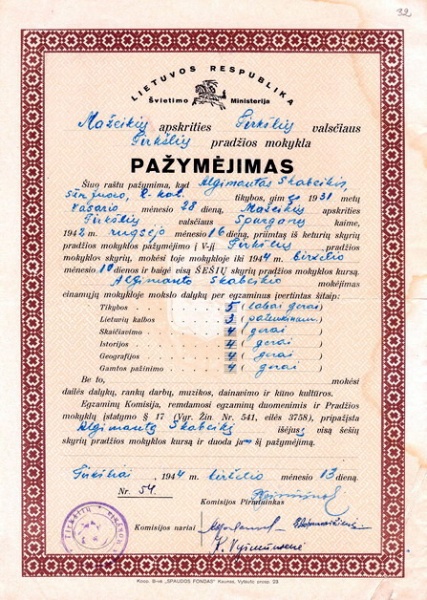 32.
LIETUVOS RESPUBLIKA
Švietimo Ministerija
Mažeikių apskrities Tirkšlių valsčiaus
Tirkšlių pradžios mokykla
PAŽYMĖJIMAS
Šiuo raštu pažymima, kad Algimantas Skabeikis,
sūn. R-kat. tikybos, gim. 1931 metų
vasario mėnesio 28 dieną, Mažeikių apskrities
Tirkšlių valsčiaus kaime,
1942 m. rugsėjo mėnesio 16 dieną, priimtas iš keturių skyrių
pradžios mokyklos pažymėjimo į V-jį Tirkšlių pradžios
mokyklos skyrių, mokėsi toje mokykloje iki 1944 m. birželio
mėnesio 10 dienos ir baigė visą ŠEŠIŲ skyrių pradžios mokyklos kursą.
Algimanto Skabeikio mokėjimas
einamųjų mokykloje mokslo dalykų per egzaminus įvertintas šitaip:
Tikybos 5 (labai gerai)
Lietuvių kalbos 3 (patenkinam.)
Skaičiavimo 4 (gerai)
Istorijos 4 (gerai)
Geografijos 4 (gerai)
Gamtos pažinimo 4 (gerai)
Be to, mokėsi
dailės dalykų, rankų darbų, muzikos, dainavimo ir kūno kultūros.
Egzaminų Komisija, remdamosi egzaminų duomenimis ir Pradžios
mokyklų įstatymo § 17 (Vyr. Žin. Nr. 541, eilės 3758), pripažįsta
Algimantą Skabeikį išėjusį visą šešių
skyrių pradžios mokyklos kursą ir duoda jam šį pažymėjimą.
Tirkšliai, 1944 m. birželio mėnesio 13 dieną.
Nr. 54.
Komisijos Pirmininkas
Komisijos nariai
Kaun. B-vė „SPAUDOS FONDAS" Kaunas, Vytauto prosp. 23